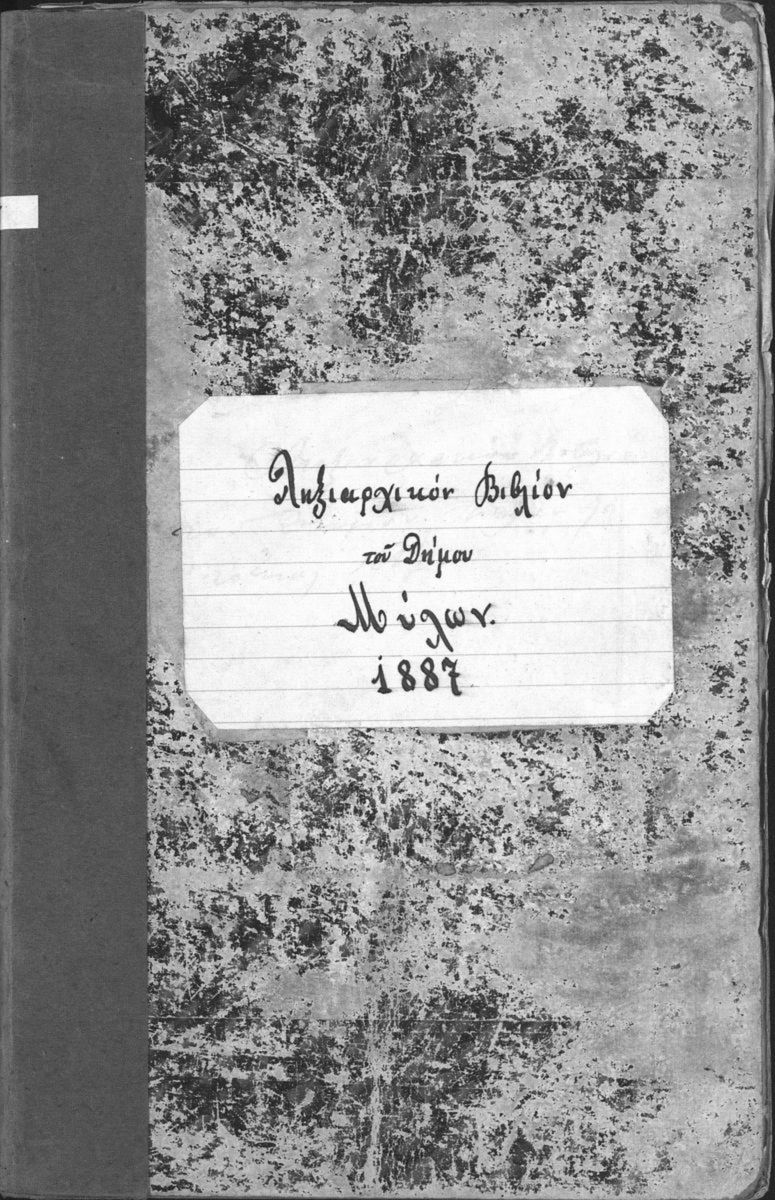 Ληξιαρχικόν Βιβλίον
τοῦ Δήμου
Μύλων.
1887